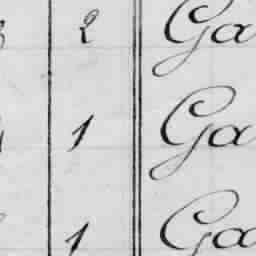 2 Ga
1 Ga
1 Ga